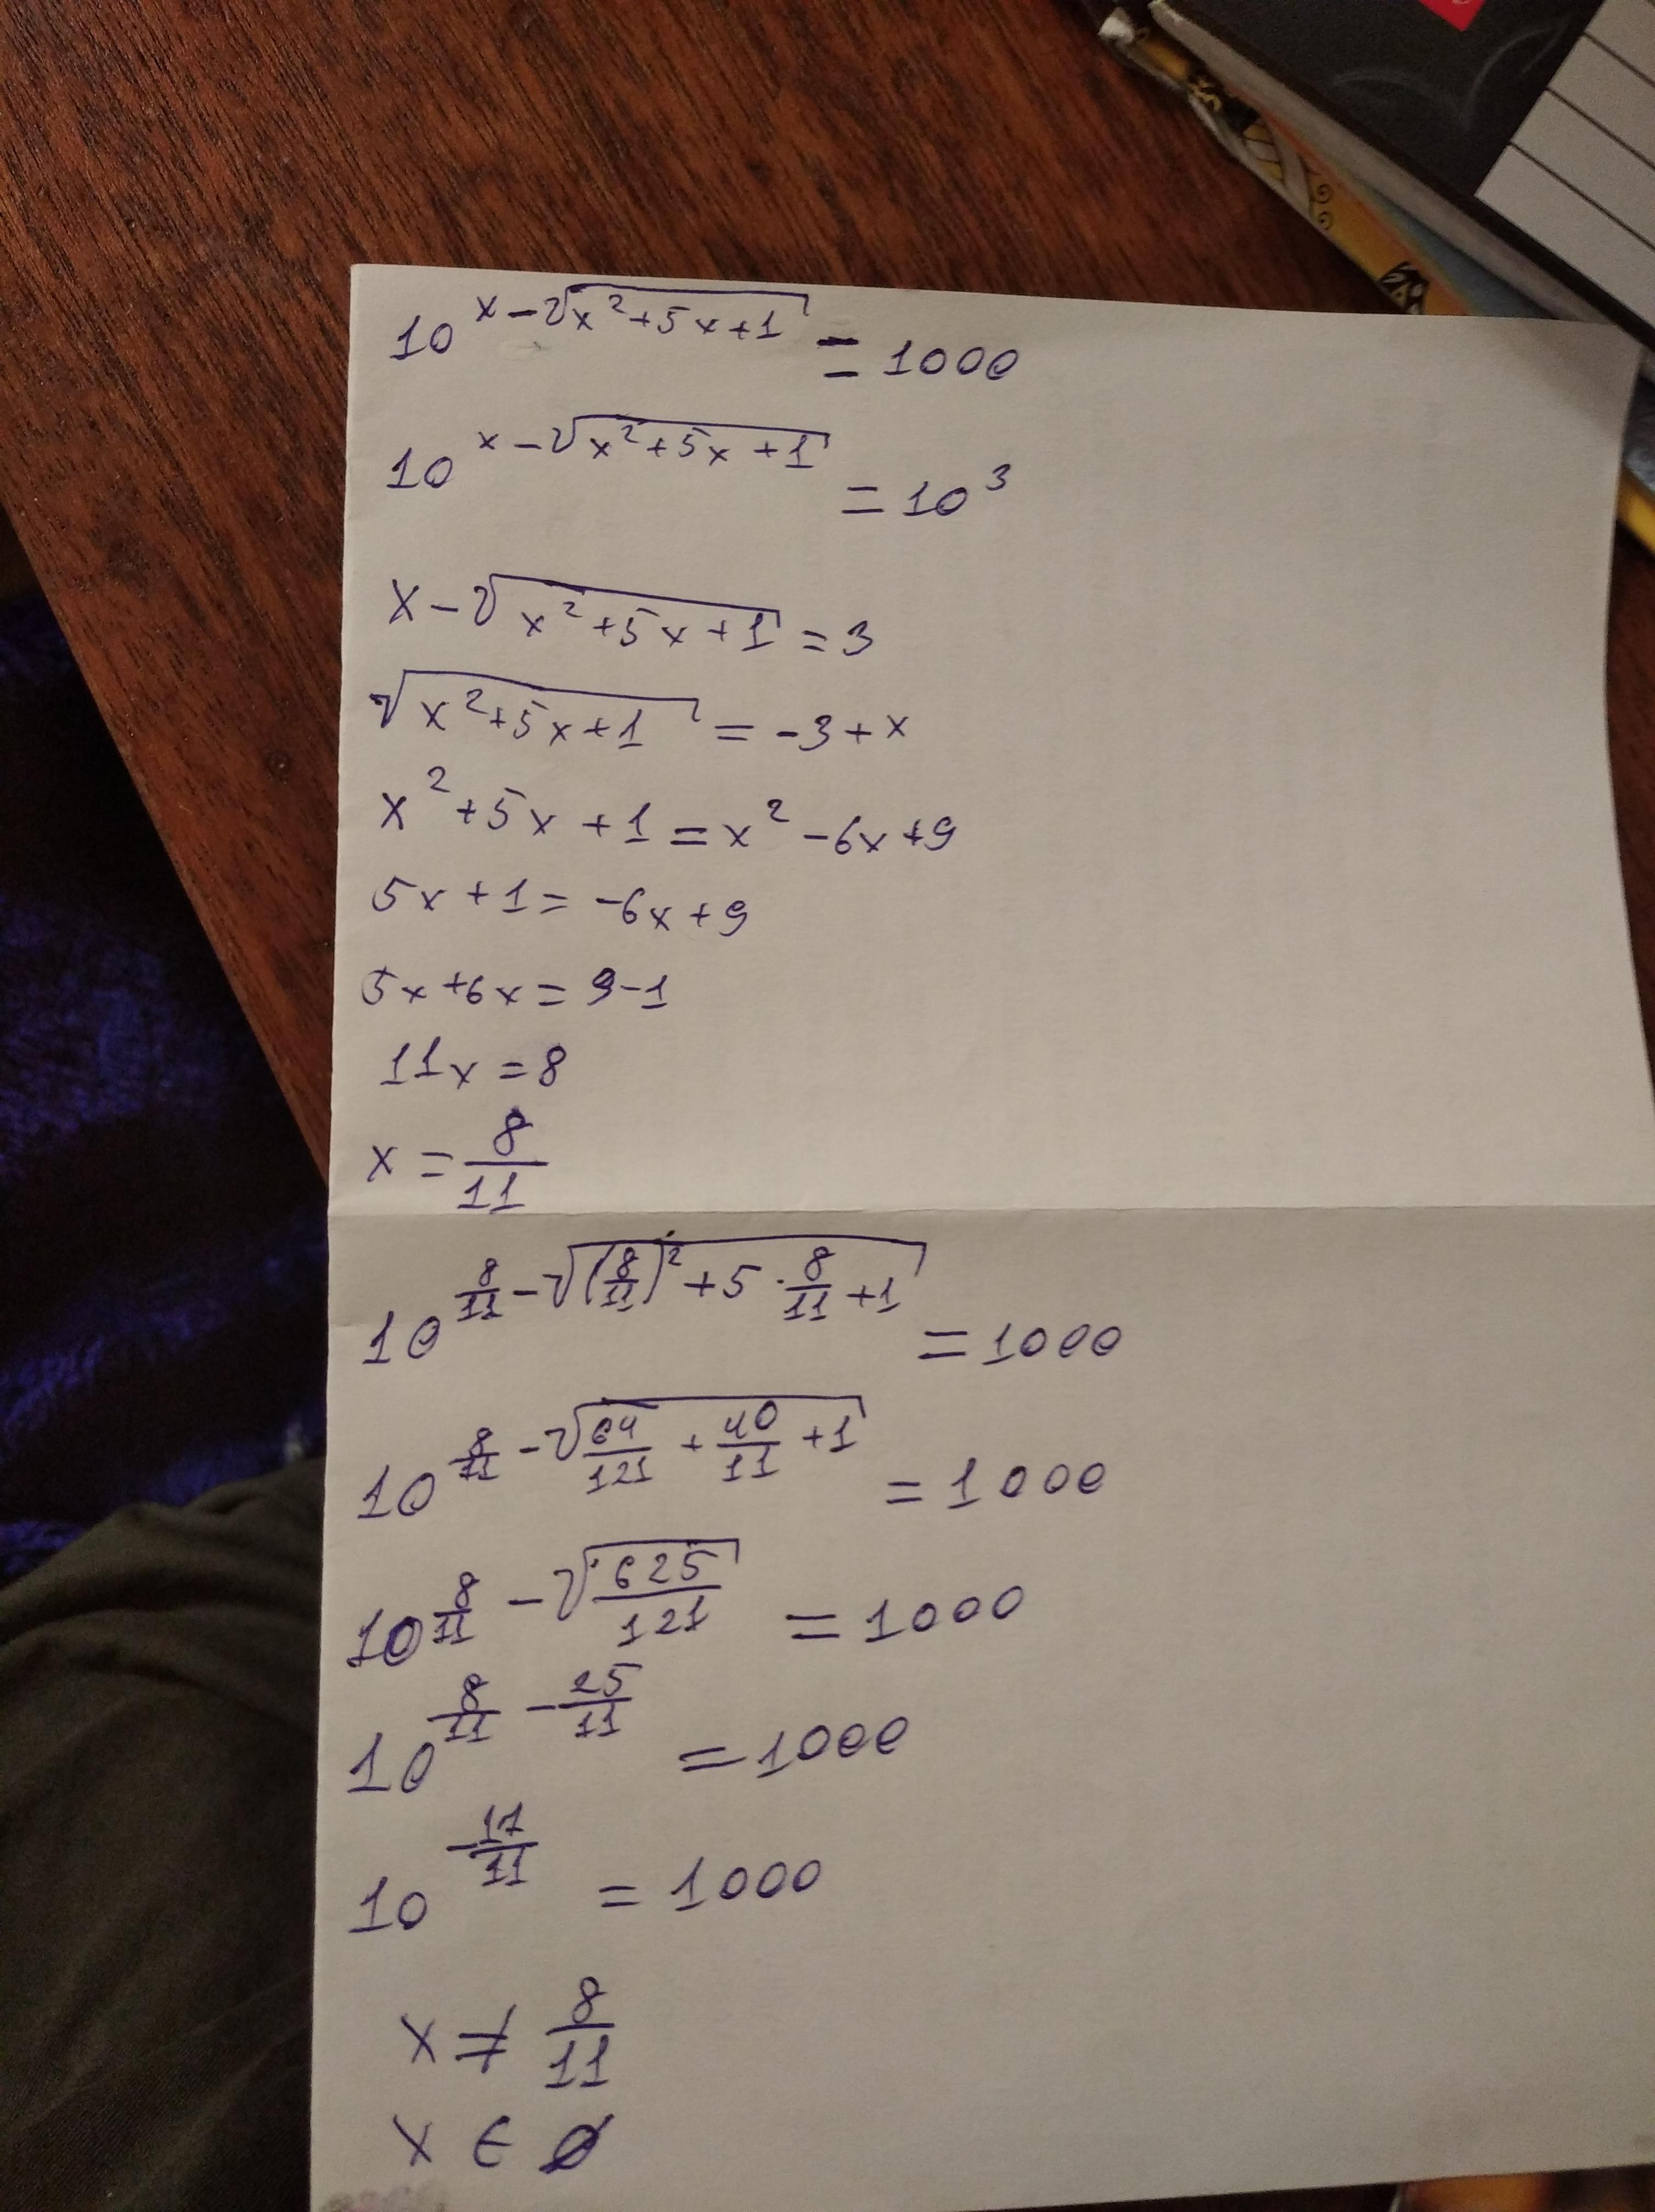 10^{x-√(x²+5x+1)} = 1000
10^{x-√(x²+5x+1)} = 10³
x-√(x²+5x+1) = 3
√(x²+5x+1) = -3+x
x²+5x+1 = x²-6x+9
5x+1 = -6x+9
5x+6x = 9-1
11x = 8
x = 8/11
10^{8/11-√((8/11)²+5·8/11+1)} = 1000
10^{8/11-√(64/121+40/11+1)} = 1000
10^{8/11-√(625/121)} = 1000
10^{8/11-25/11} = 1000
10^{-17/11} = 1000
x ≠ 8/11
x ∈ ∅